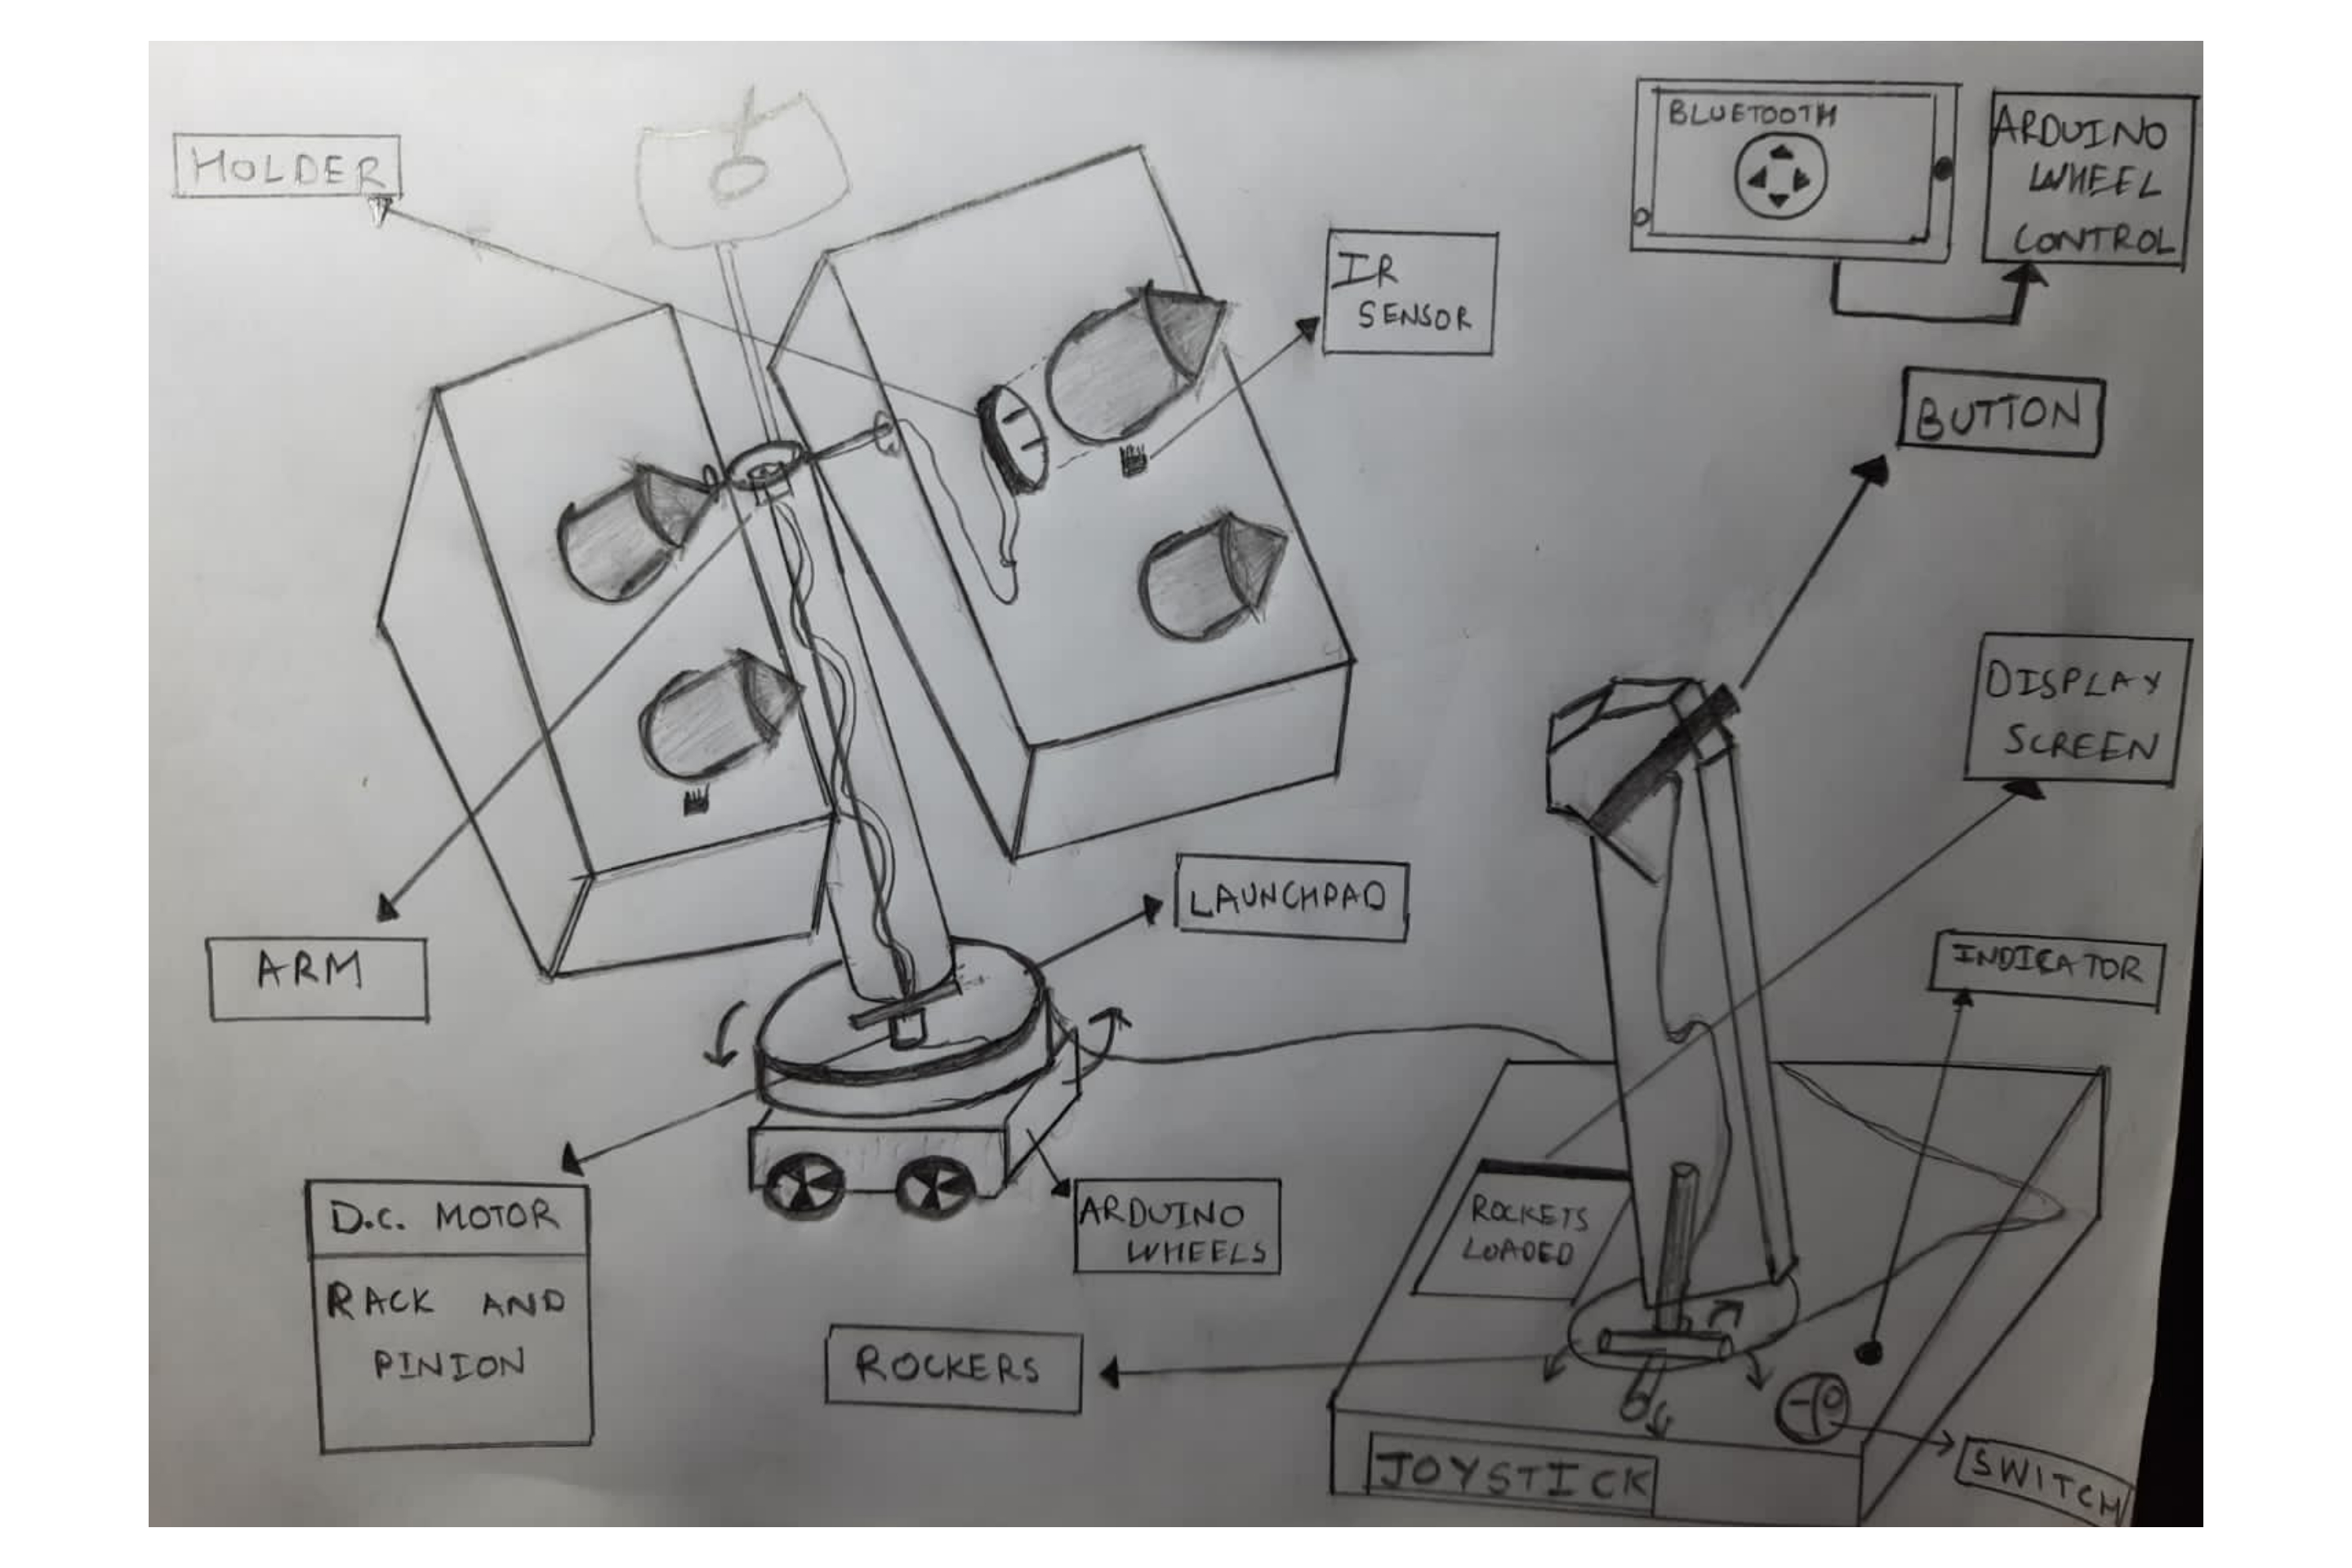 HOLDER
BLUETOOTH
ARDUINO
WHEEL
CONTROL
IR
SENSOR
BUTTON
DISPLAY
SCREEN
LAUNCHPAD
ARM
INDICATOR
D.C. MOTOR
RACK AND
PINION
ARDUINO
WHEELS
ROCKETS
LOADED
ROCKERS
JOYSTICK
SWITCH